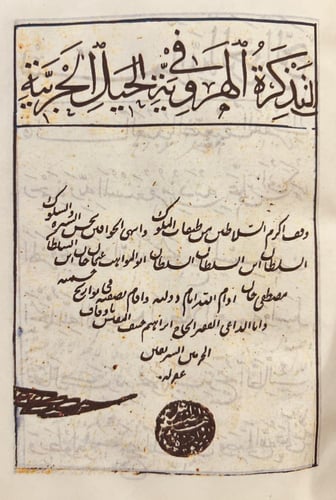 التذكرة الهروية في الحيل الحربية
وقف اكرم السلاطين من طبقات الملوك واسنى الخواقين بحسن السيرة والسلوك
السلطان ابن السلطان السلطان ابو المواهب عثمان خان ابن السلطان
مصطفى خان ادام الله ايام دولته واقام بصفته في تواريخ
وانا الداعي الفقير الحاج ابراهيم حنيف المفتش باوقاف
الحرمين الشريفين
غفر له